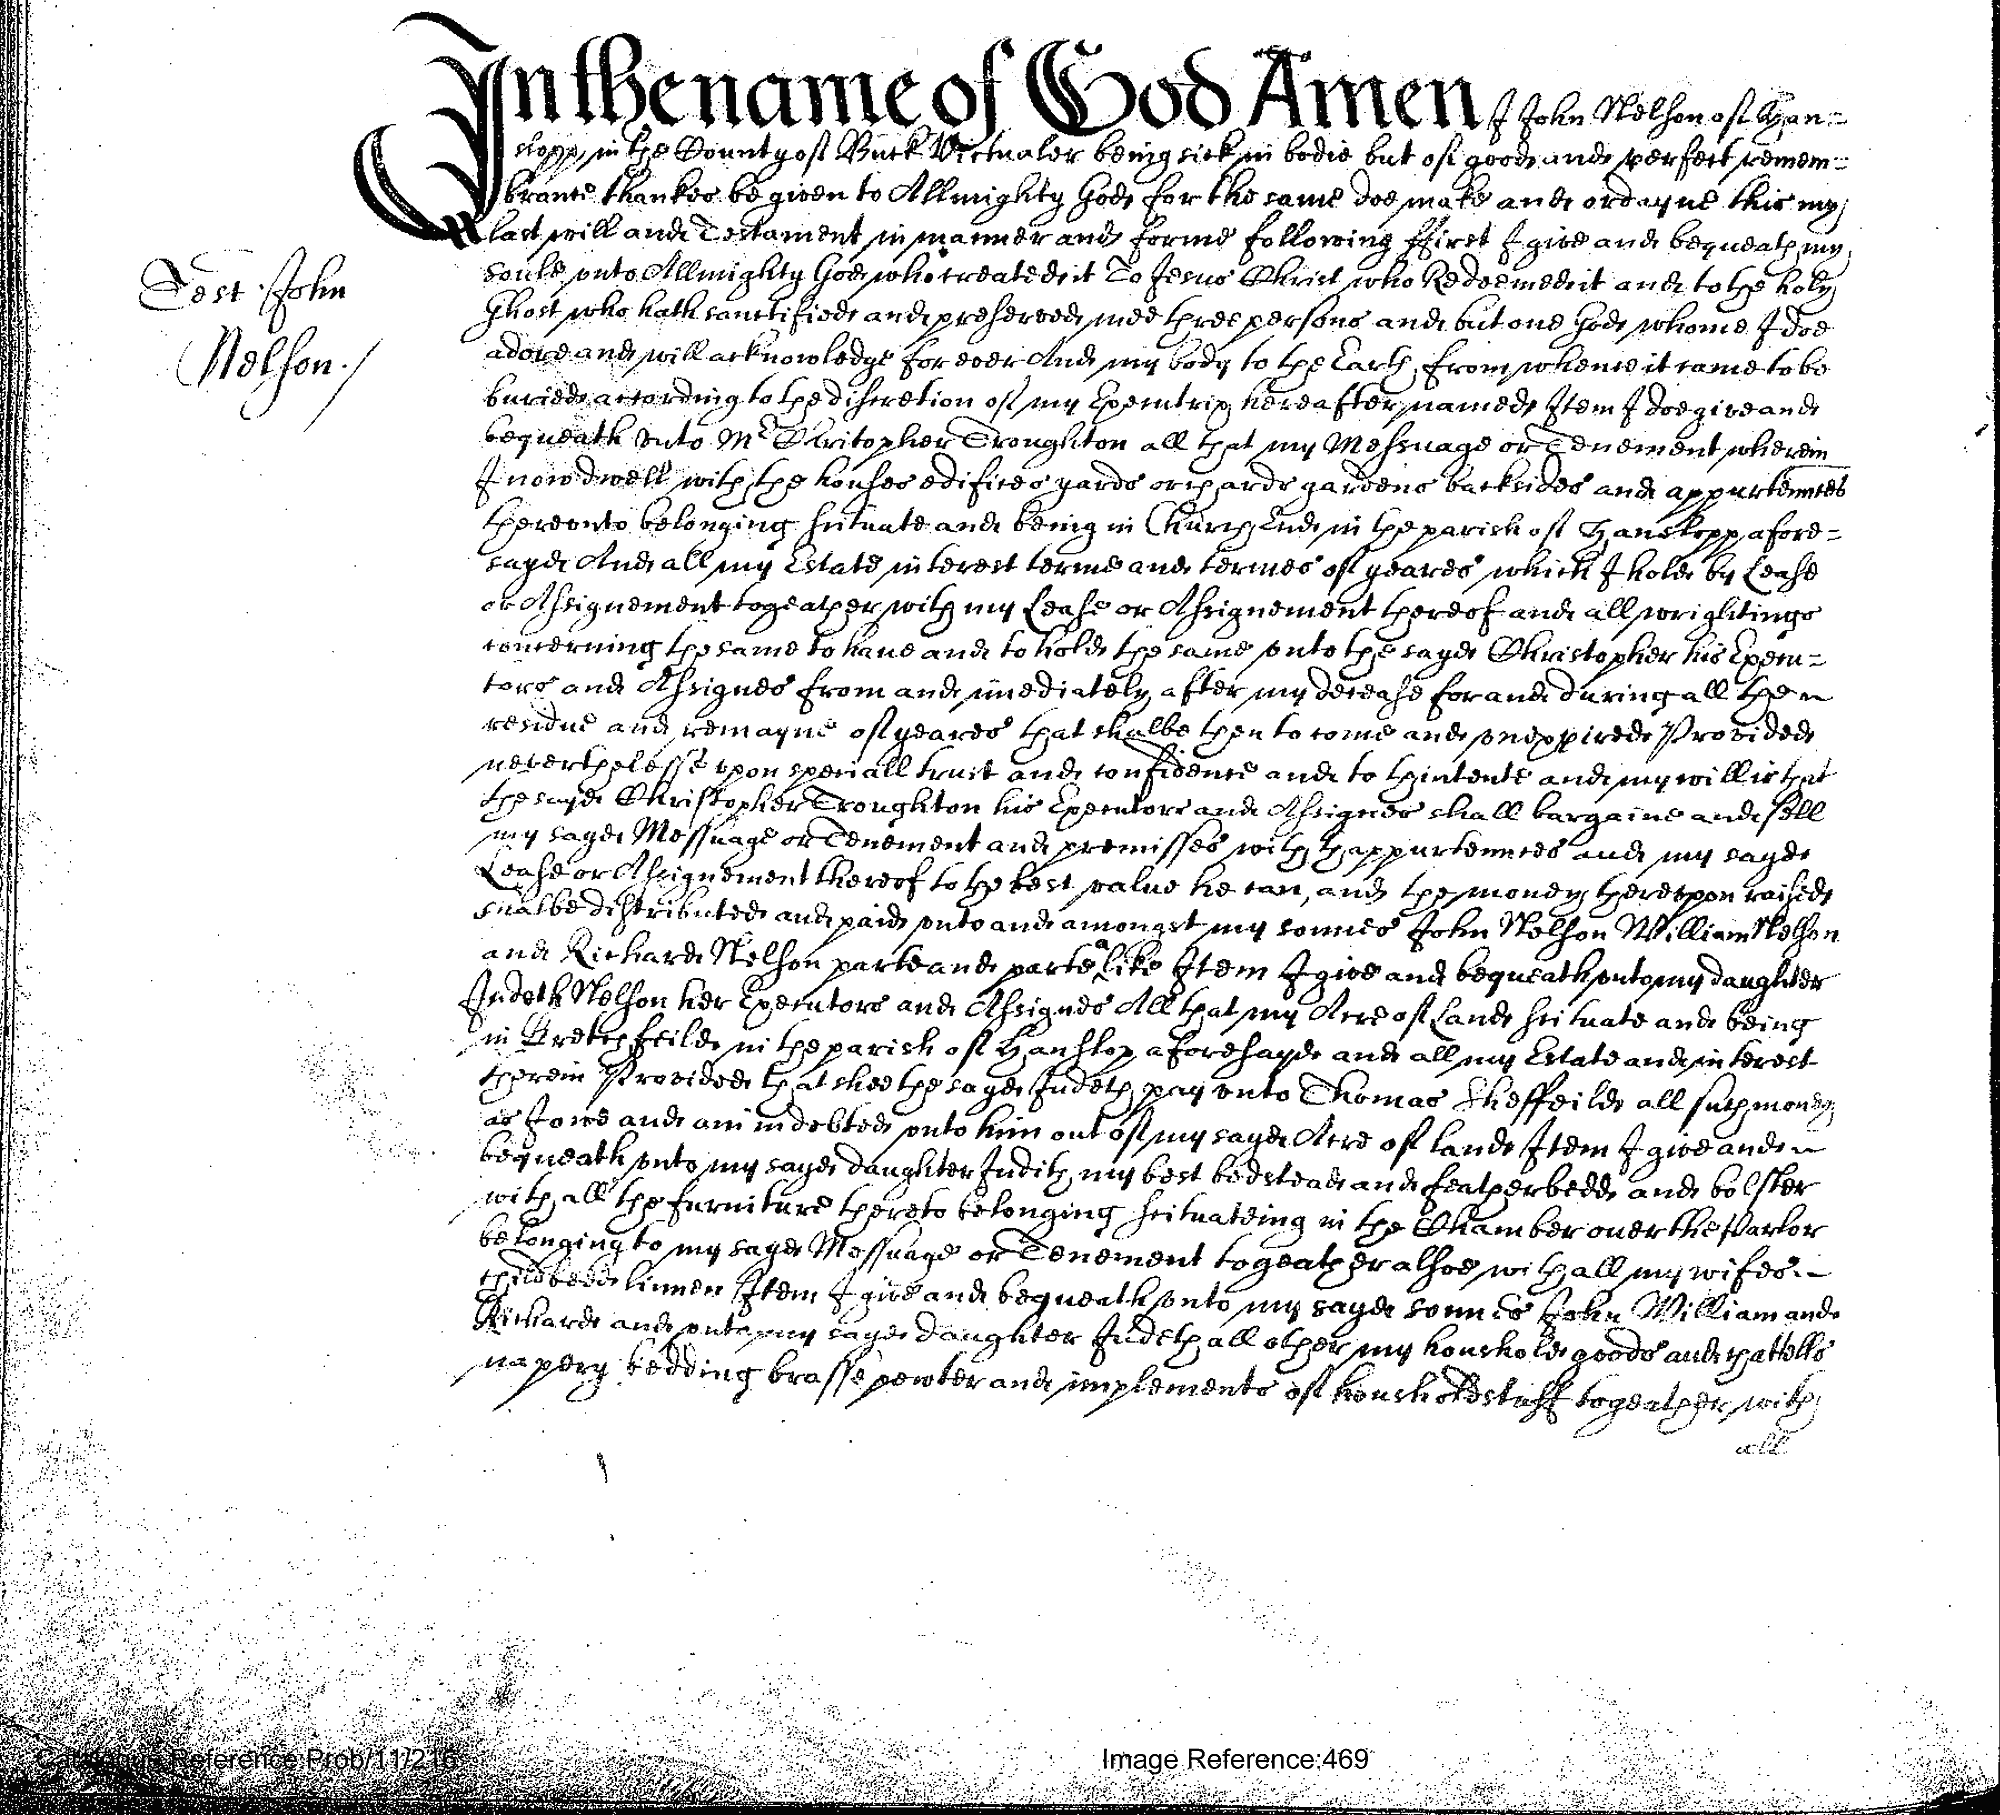 In the name of God Amen I John Nelson of Han=
slopp in the County of Buck Victualer being sick in bodie but of good and perfect remem=
brance thankes be given to Allmighty God for the same doe make and ordayne this my
last will and Testament in manner and forme following ffirst I give and bequeath my
soule vnto Allmighty God who created it To Jesus Christ who Redeemed it and to the holy
Ghost who hath sanctified and preserved mee three persons and but one God whome I doe
adore and will acknowledge for ever And my body to the Earth from whence it came to be
buried according to the discretion of my Executrix hereafter named Item I doe give and
bequeath vnto Mr Chritopher Troughton all that my Messuage or Tenement wherein
I now dwell with the houses edifices yards orchards gardens backsides and appurtennces
therevnto belonging scituate and being in Church End in the parish of Hanslopp afore=
sayd And all my Estate interest terme and termes of yeares which I hold by Lease
or Assignement togeather with my Lease or Assignement thereof and all wrightings
concerning the same to haue and to hold the same vnto the sayd Christopher his Execu=
tors and Assignes from and imediately after my decease for and during all the
residue and remayne of yeares that shalbe then to come and vnexpired Provided
neverthelesse vpon speciall trust and confidence and to thintente and my will is that
the sayd Christopher Troughton his Executors and Assignes shall bargaine and sell
my sayd Messuage or Tenement and premisses with thappurtennces and my sayd
Lease or Assignement thereof to the best value he can, and the money therevpon raised
shalbe distributed and paid vnto and amongst my sonnes John Nelson William Nelson
and Richard Nelson parte and parte alike Item I give and bequeath vnto my daughter
Judeth Nelson her Executors and Assignes All that my Acre of Land scituate and being
in Bretchfeild in the parish of Hanslop aforesayd and all my Estate and interest
therein Provided that shee the sayd Judeth pay vnto Thomas Sheffeild all such money
as I owe and am indebted vnto him out of my sayd Acre of land Item I give and
bequeath vnto my sayd daughter Judith my best bedstead and featherbedd and bolster
with all the furniture thereto belonging scituateing in the Chamber over the Parlor
belonging to my sayd Messuage or Tenement togeather alsoe with all my wifes
childbedd linnen Item I give and bequeath vnto my sayd sonnes John William and
Richard and vnto my sayd daughter Judeth all other my houshold goods and chattells
napery bedding brasse pewter and implements of houshold stuff togeather with
all
Test John
Nelson./
Catalogue Reference:Prob/11/216
Image Reference:469